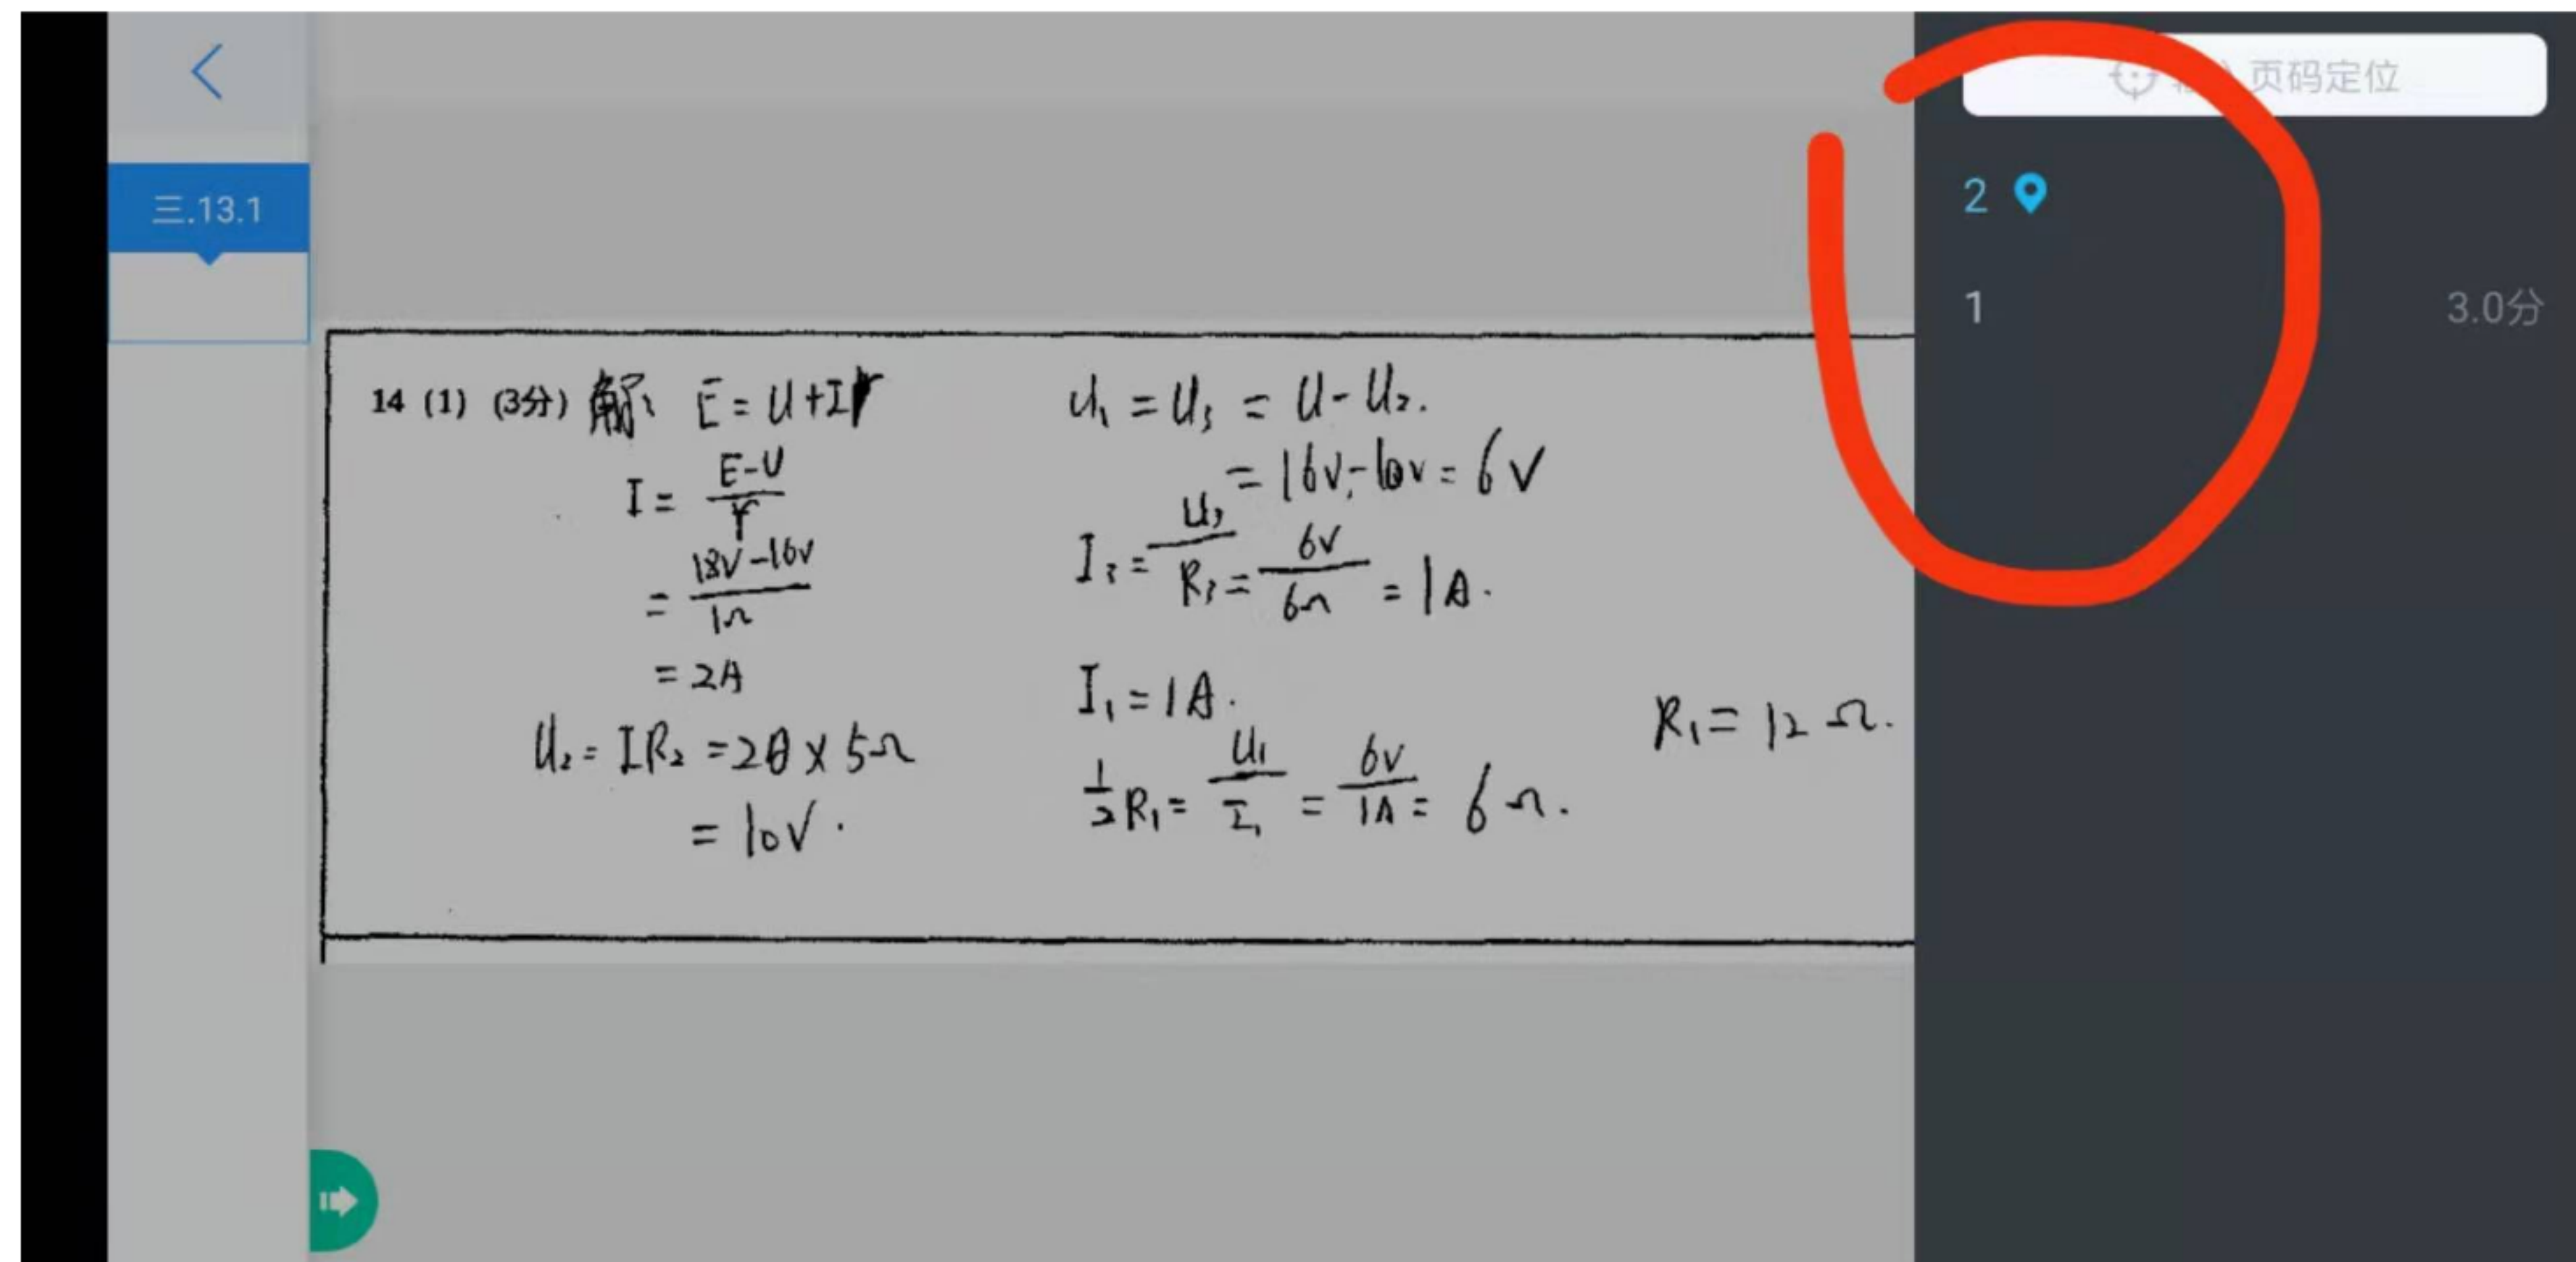 页码定位
三.13.1
2
1 3.0分
14 (1) (3分) 解: E = U + Ir
I = \frac{E-U}{r}
= \frac{18V-16V}{1Ω}
= 2A
U₂ = IR₂ = 2A × 5Ω
= 10V.
U₁ = U₃ = U - U₂.
= 16V - 10V = 6V
I₃ = \frac{U₃}{R₃} = \frac{6V}{6Ω} = 1A.
I₁ = 1A.
\frac{1}{2}R₁ = \frac{U₁}{I₁} = \frac{6V}{1A} = 6Ω.
R₁ = 12Ω.